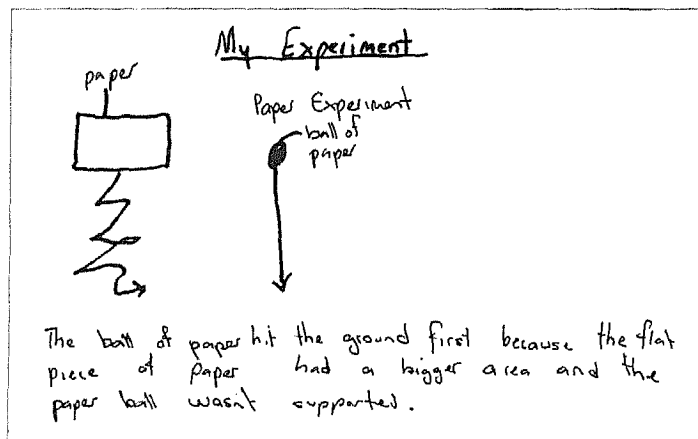 My Experiment
paper
Paper Experiment
ball of
paper
The ball of paper hit the ground first because the flat
piece of paper had a bigger area and the
paper ball wasn't supported.